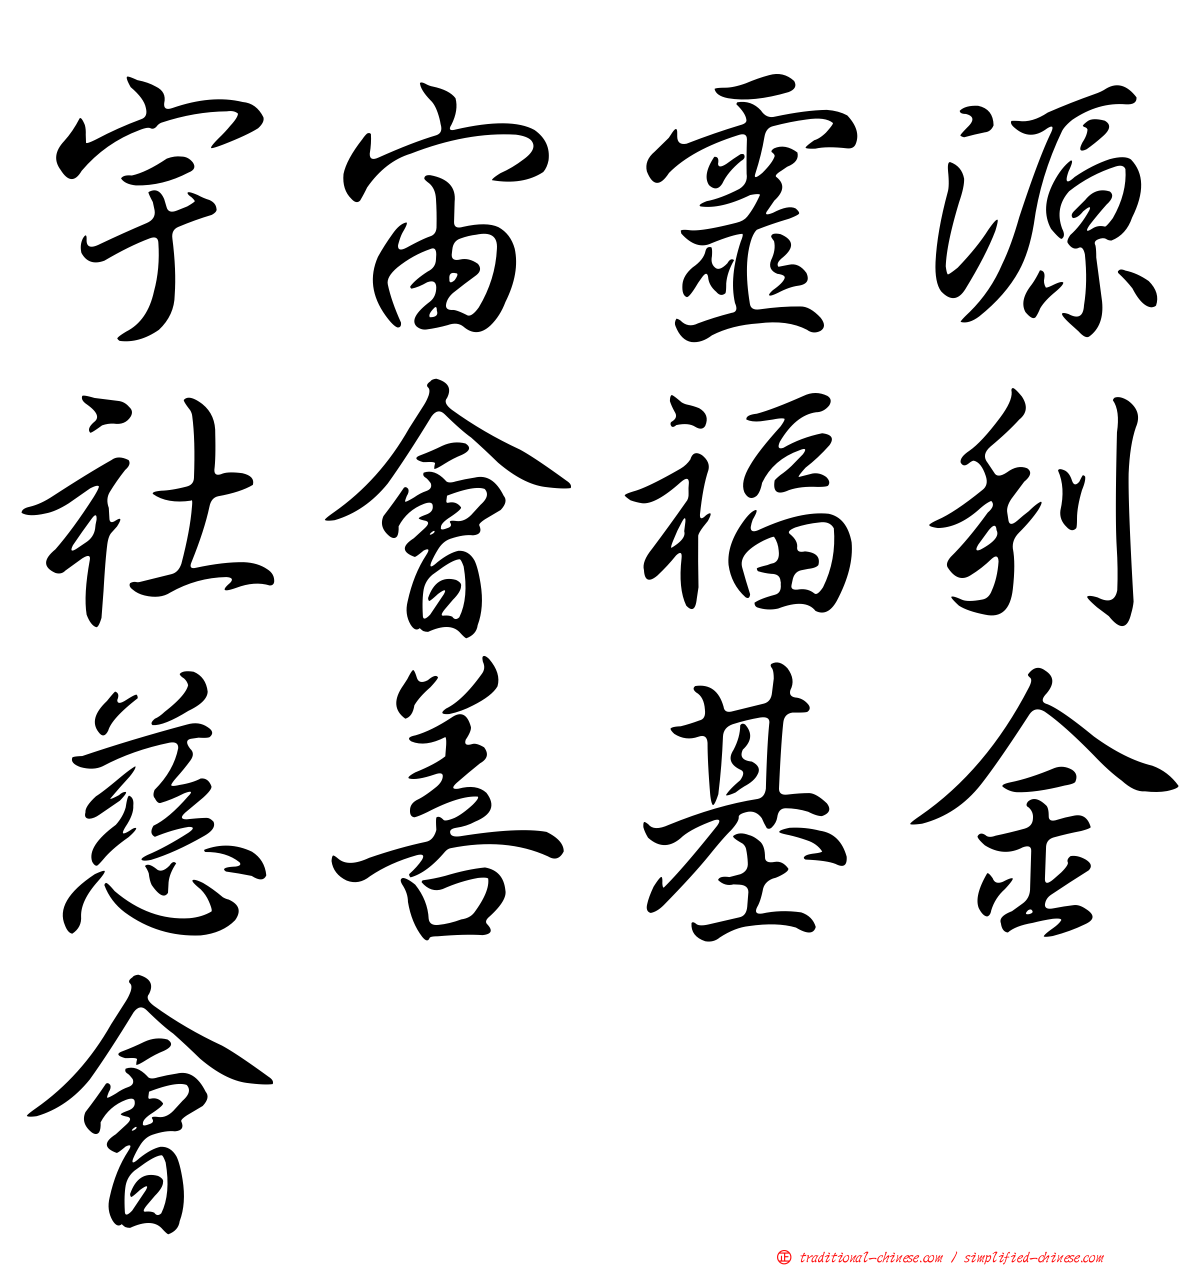 宇宙靈源
社會福利
慈善基金
會
㊣ traditional-chinese.com / simplified-chinese.com